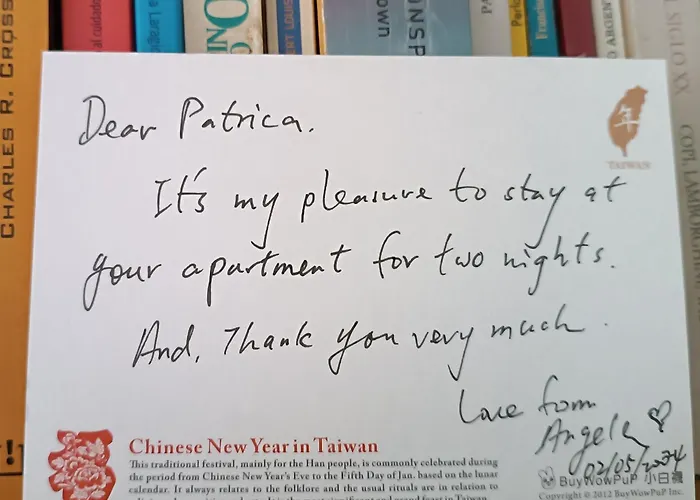 CHARLES R. CROSS
Dear Patrica.
年
TAIWAN
It's my pleasure to stay at
your apartment for two nights.
And, Thank you very much.
Love from
Angela ♡
02/05/2024
Chinese New Year in Taiwan
This traditional festival, mainly for the Han people, is commonly celebrated during
the period from Chinese New Year's Eve to the Fifth Day of Jan. based on the lunar
calendar. It always relates to the folklore and the usual rituals are in relation to
BuyWowPuP 小白襪
Copyright © 2012 BuyWowPuP Inc
SIGLO XX